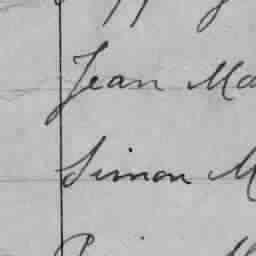 Jean Ma
Simon M